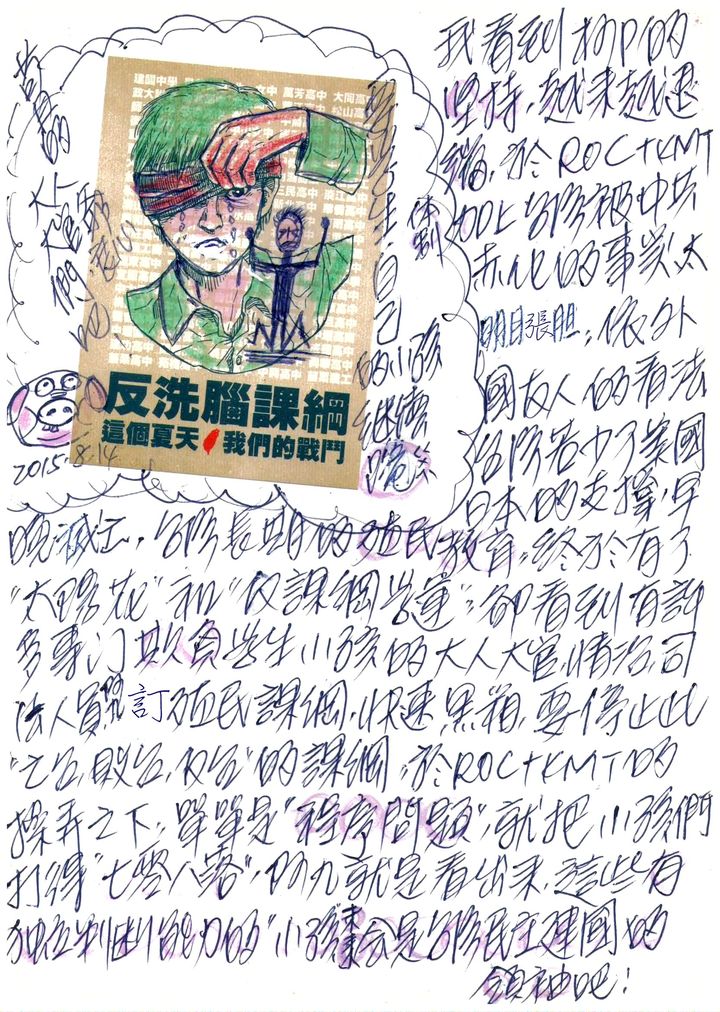 我看到柯P的
坚持,越来越退
縮,於ROC+KMT
加上台湾被中共
赤化的事業太
明目張胆,依外
國友人的看法
台湾若少了美國
日本的支撐,早
晚滅亡,台湾長期的殖民教育,終於有了
"太陽花"和"反課綱學運",卻看到有許
多專门欺負学生小孩的大人大官,情治,司
法人員 訂殖民課綱,快速黑箱,要停止此
"亡台,敗台,反台"的課綱,於ROC+KMT的
操弄之下,單單是"程序問題",就把小孩們
打得"七零八落",阿九就是看出来,這些有
独立判断能力的"小孩 会是台湾民主建國的
領袖吧!
建國中學
中 萬芳高中 大同高
政大附
松山高
三民高中 淡江高中
反洗腦課綱
這個夏天 我們的戰鬥
2015.8.14
体制
自己
的小孩
继續
大人
大官
們